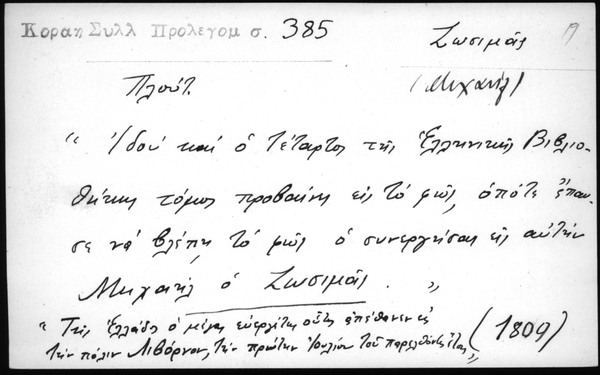 Κοραη Συλλ Προλεγομ σ. 385
Ζωσιμᾶς
(Μιχαήλ)
Πλούτ.
" Ἰδού καί ὁ τέταρτος τῆς Ἑλληνικῆς Βιβλιο-
θήκης τόμος προβαίνει εἰς τό φῶς, ὁπότε ἔπαυ-
σε νά βλέπῃ τό φῶς ὁ συνεργήσας εἰς αὐτήν
Μιχαήλ ὁ Ζωσιμᾶς. "
" Τῆς Ἑλλάδος ὁ μέγας εὐεργέτης οὗτος ἀπέθανεν εἰς
τήν πόλιν Λιβόρνον, τήν πρώτην Ἰουλίου τοῦ παρελθόντος ἔτους "
(1809)